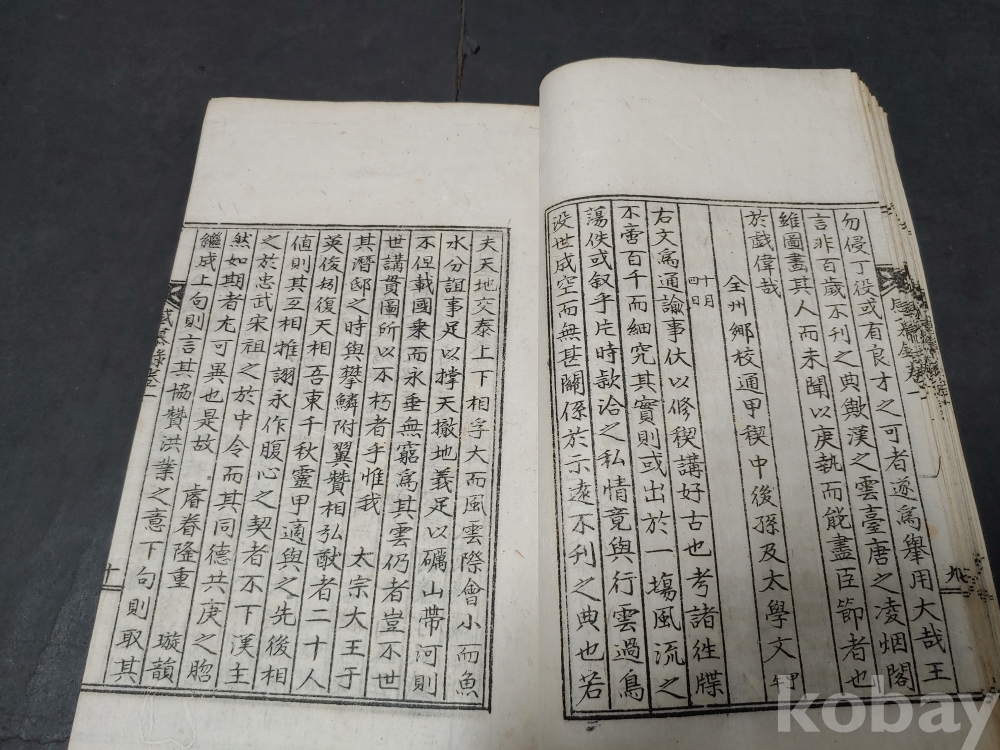 勿侵丁役或有良才之可者遂爲擧用大哉王
言非百歲不刊之典歟漢之雲臺唐之凌烟閣
雖圖畫其人而未聞以庚執而能盡臣節者也
於戲偉哉
全州鄕校通甲稧中後孫及太學文 甲午
十月四日
右文爲通諭事伏以修稧講好古也考諸徃牒
不啻百千而細究其實則或出於一塲風流之
蕩佚或叙乎片時欵洽之私情竟與行雲過鳥
沒世成空而無甚關係於示遠不刊之典也若
夫天地交泰上下相孚大而風雲際會小而魚
水分誼事足以撑天撤地義足以礪山帶河則
不但載國乘而永垂無窮爲其雲仍者豈不世
世講貫圖所以不朽者乎惟我 太宗大王于
其潛邸之時與攀鱗附翼贊相弘猷者二十人
英後礽復天相吾東千秋靈甲適與之先後相
値則其互相推詡永作腹心之契者不下漢主
之於忠武宋祖之於中令而其同德共庚之昭
然如期者尤可異也是故 睿眷隆重 璇韻
繼成上句則言其協贊洪業之意下句則取其
十
九
kobay